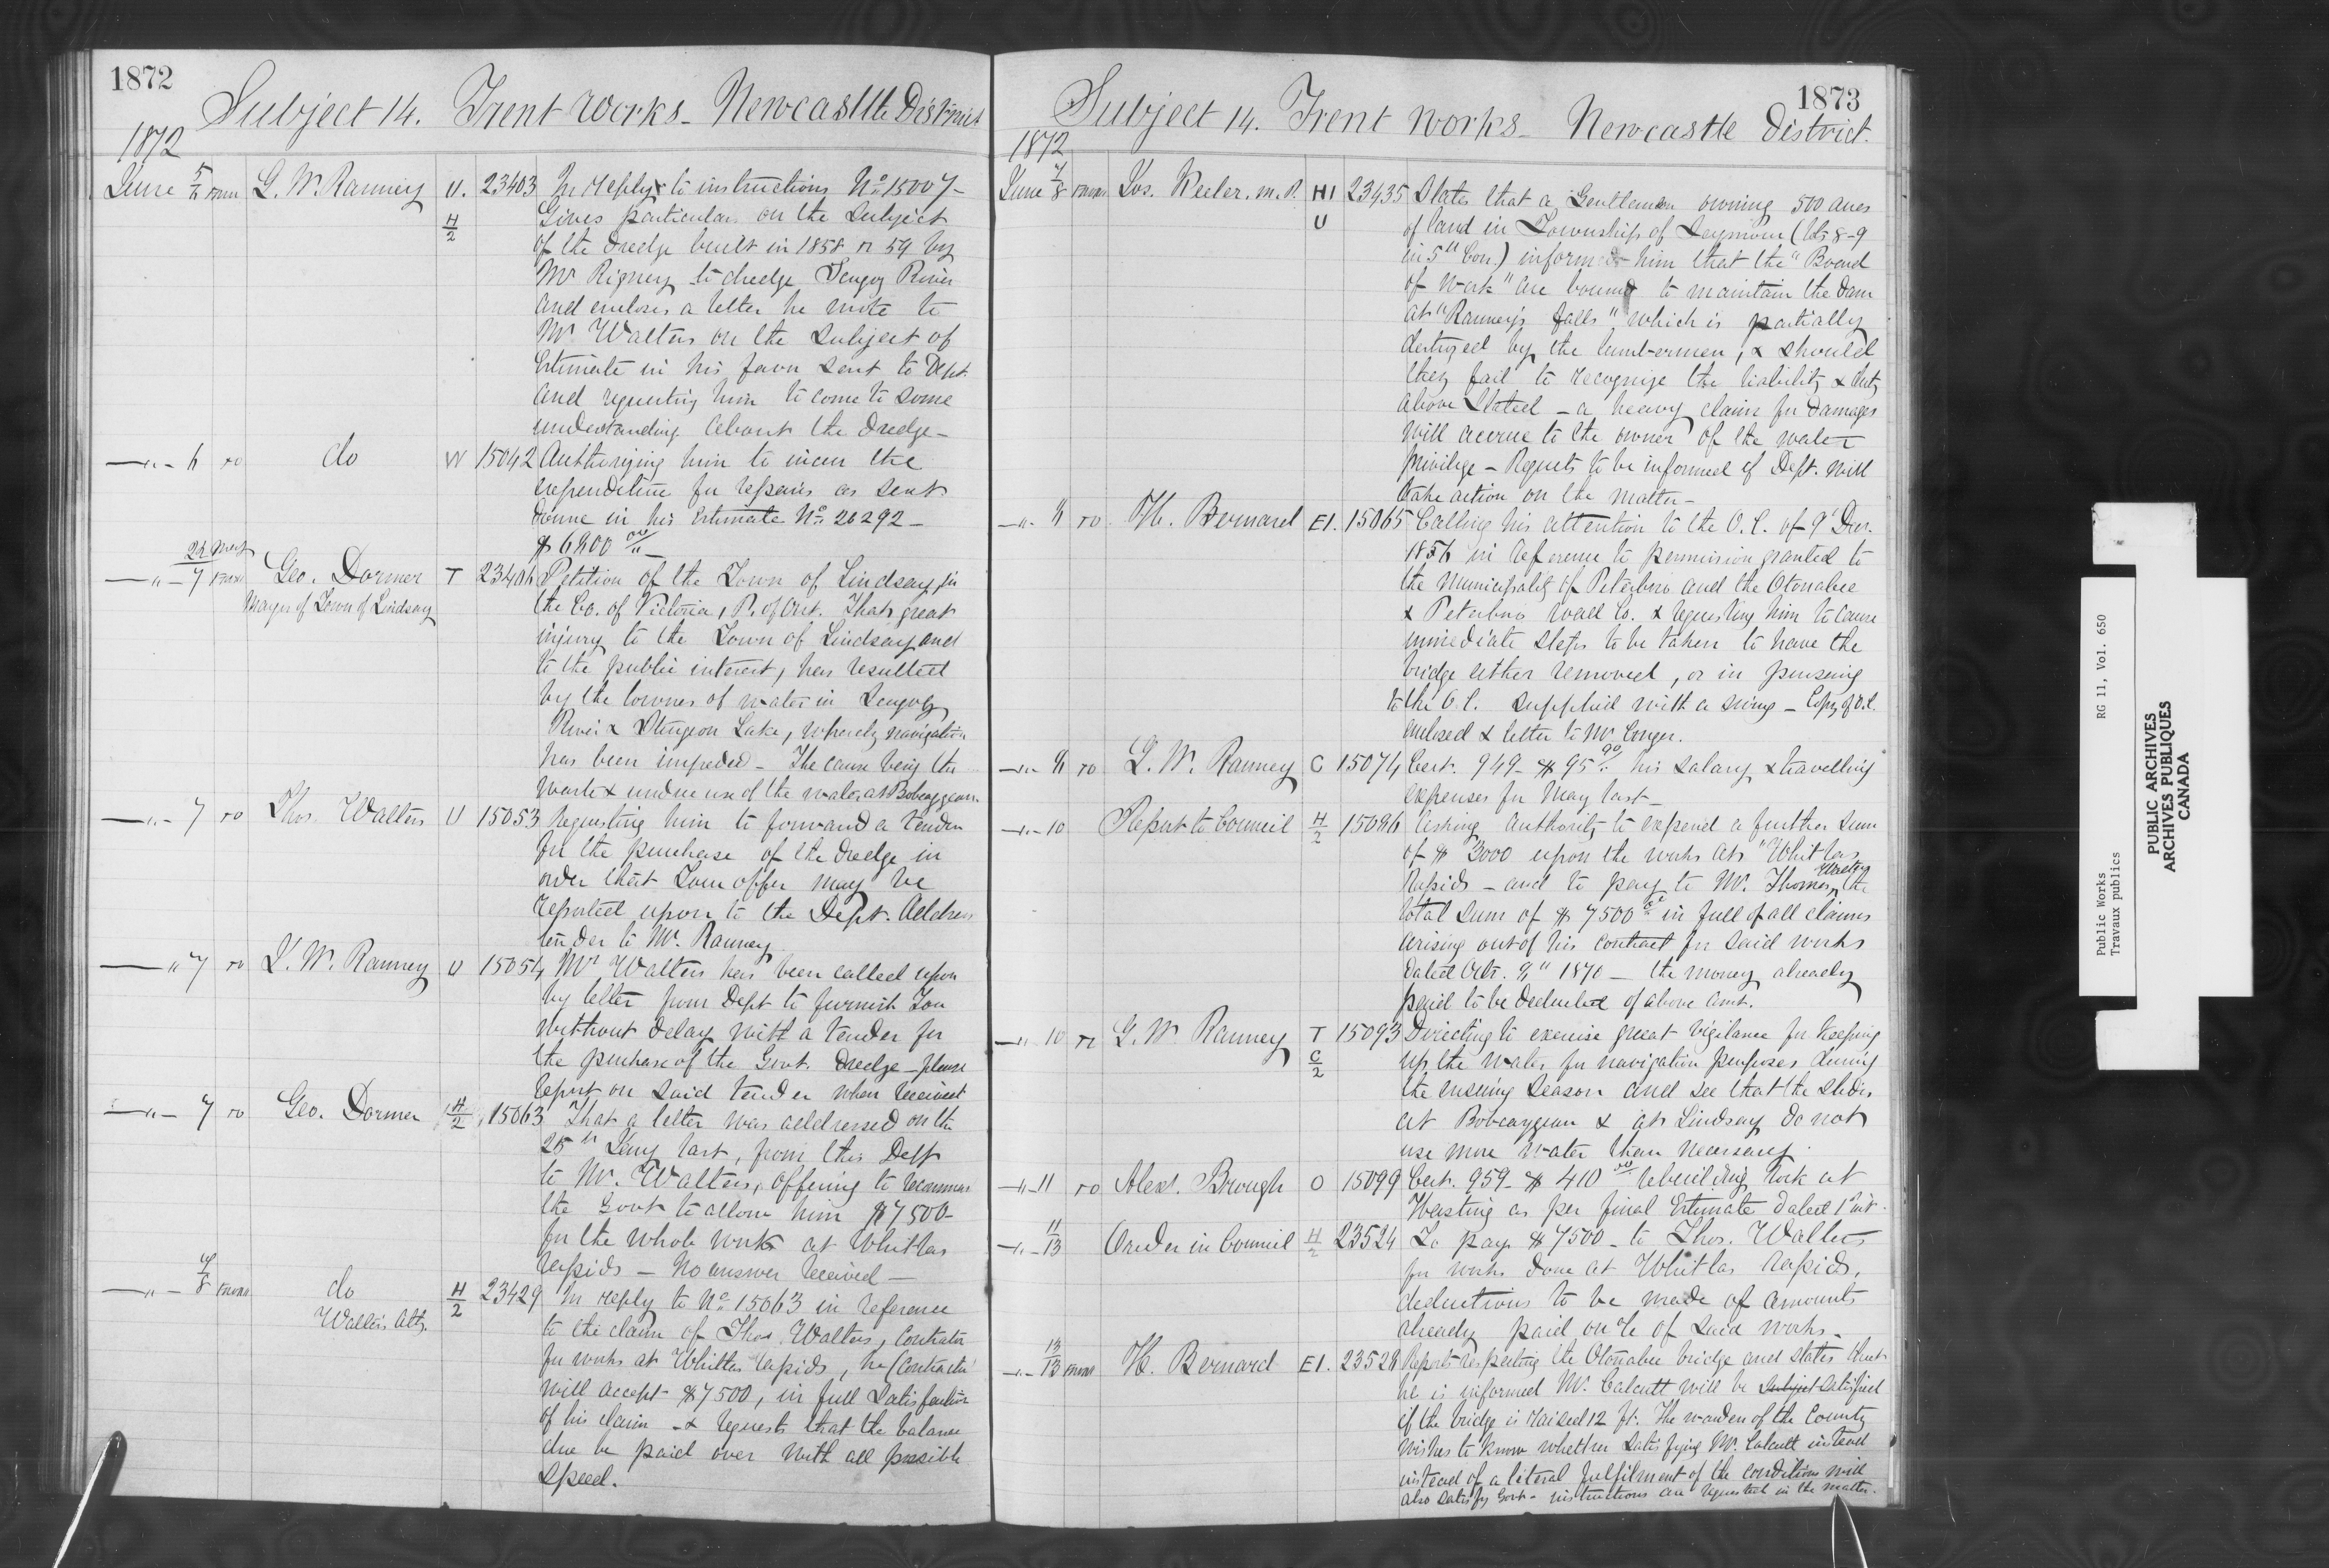 1872
Subject 14. Trent Works - Newcastle District
1872
June 5/6 from G. W. Ranney U. H/2 23403 In reply to instructions No 15007 -
Gives particulars on the subject
of the dredge built in 1858 or 59 by
Mr Rigney to dredge Scugog River
and encloses a letter he wrote to
Mr Walters on the subject of
Estimate in his favr sent to Dept.
and requesting him to come to some
understanding about the dredge -
" 6 to do W 15042 Authorizing him to incur the
expenditure for repairs as sent
down in his Estimate No
$6800 00/
" 7 from Geo. Dormer T Petition of the Town of Lindsay, in
Mayor of Town of Lindsay the Co. of Victoria, P. of Ont. That great
injury to the Town of Lindsay and
to the public interest, has resulted
by the lowness of water in Scugog
River & Sturgeon Lake, whereby navigation
has been impeded - The cause being the
waste & undue use of the water at Bobcaygeon.
" 7 to Thos. Walters U 15053 Requesting him to forward a tender
for the purchase of the dredge in
order that Your offer may be
reported upon to the Dept. Address
tender to Mr. Ranney
" 7 to G. W. Ranney U 15054 Mr Walters has been called upon
by letter from Dept to furnish You
without delay with a tender for
the purchase of the Govt. Dredge - please
report on said tender when received
" 7 to Geo. Dormer H/2 15063 That a letter was addressed on the
25th Jany last, from this Dept
to Mr. Walters, offering to recommend
the Govt to allow him $7500 -
for the whole work at Whitlas
Rapids - No answer received -
" 7/8 from do H/2 23429 In reply to No 15063 in reference
Walters Atty. to the claim of Thos. Walters, Contractor
for works at Whitlas rapids, he (Contractor)
will accept $7500, in full satisfaction
of his claim - & requests that the balance
due be paid over with all possible
speed.
1873
Subject 14. Trent Works - Newcastle District.
1872
June 7/8 from Jos. Keeler. M.P. H1 U 23435 States that a Gentleman owning 500 acres
of land in Township of Seymour (lots 8-9
in 5th Con.) informed him that the "Board
of Work" are bound to maintain the dam
at "Ranney's falls" which is partially
destroyed by the lumbermen, & should
they fail to recognize the liability & duty
above stated - a heavy claim for damages
will accrue to the owner of the water
privilege - Requests to be informed if Dept. will
take action on the matter -
" 8 to H. Bernard E1. 15065 Calling his attention to the O.C. of 9 Decr.
in reference to permission granted to
the Municipality of Peterboro and the Otonabee
& Peterboro road Co. & requesting him to cause
immediate steps to be taken to have the
bridge either removed, or in pursuing
to the O.C. supplied with a swing - Copy of O.C.
enclosed & letter to Mr Conger.
" 8 to G. W. Ranney C 15074 Cert. 949 - $95 90/ his salary & travelling
expenses for May last -
" 10 Report to Council H/2 15086 Asking authority to expend a further sum
of $3000 upon the works at "Whitlas
Rapids - and to pay to Mr. Thomas Walters the
total sum of $7500 in full of all claims
arising out of his contract for said works
dated Octr. 8" 1870 - the money already
paid to be deducted of above amt.
" 10 to G. W. Ranney T C/2 15093 Directing to exercise great vigilance for keeping
up the water for navigation purposes during
the ensuing season and see that the slides
at Bobcaygeon & at Lindsay do not
use more water than necessary.
" 11 to Alexr. Brough O 15099 Cert. 959 - $410 00 rebuilding lock at
Hasting as per final Estimate dated 1st inst.
" 11/13 Order in Council H/2 23524 To pay $7500 - to Thos. Walters
for works done at Whitlas Rapids,
deductions to be made of amounts
already paid on a/c of said works.
" 13/13 from H. Bernard E1. 23528 Reports respecting the Otonabee bridge and states that
he is informed Mr. Calcutt will be subject satisfied
if the bridge is raised 12 ft. The warden of the County
wishes to know whether satisfying Mr. Calcutt instead
instead of a literal fulfilment of the conditions will
also satisfy Govt - instructions are requested in the matter.
Public Works RG 11, Vol. 650
Travaux publics
PUBLIC ARCHIVES
ARCHIVES PUBLIQUES
CANADA